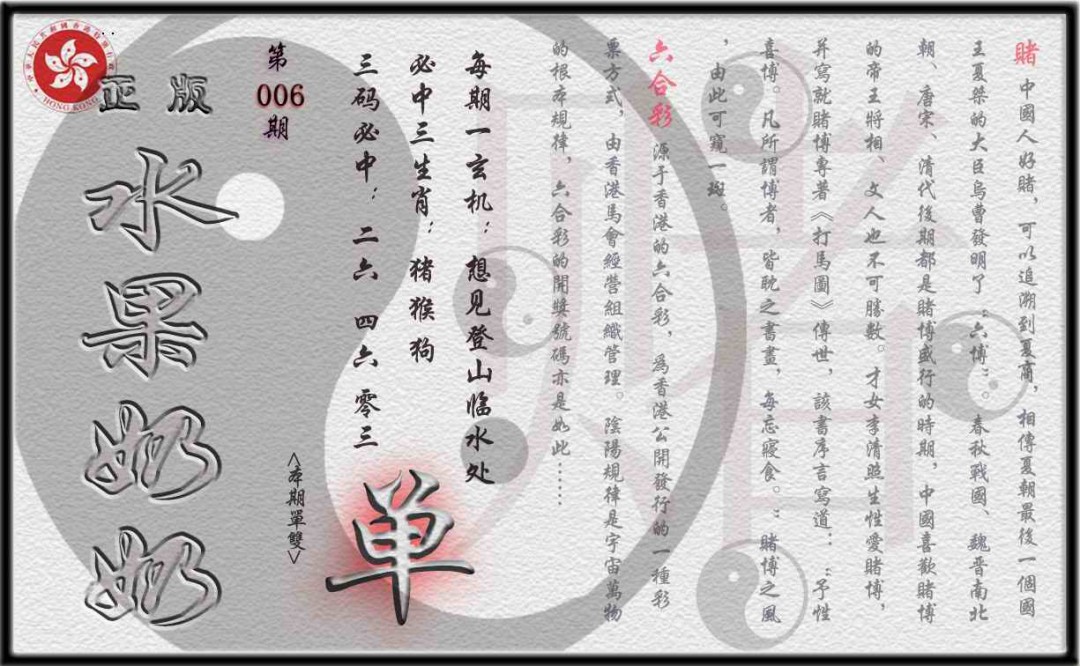 賭 中國人好賭，可以追溯到夏商，相傳夏朝最後一個國
王夏桀的大臣烏曹發明了“六博”。春秋戰國、魏晋南北
朝、唐宋、清代後期都是賭博盛行的時期，中國喜歡賭博
的帝王將相、文人也不可勝數。才女李清照生性愛賭博，
并寫就賭博專著《打馬圖》傳世，該書序言寫道：“予性
喜博。凡所謂博者，皆耽之書晝，每忘寢食。”賭博之風
，由此可窺一斑。
六合彩 源于香港的六合彩，爲香港公開發行的一種彩
票方式，由香港馬會經營組織管理。陰陽規律是宇宙萬物
的根本規律，六合彩的開獎號碼亦是如此……
每期一玄机：想见登山临水处
必中三生肖：猪猴狗
三码必中：二六 四六 零三
单
<本期單雙>
第
006
期
正版
水果奶奶
HONG KONG